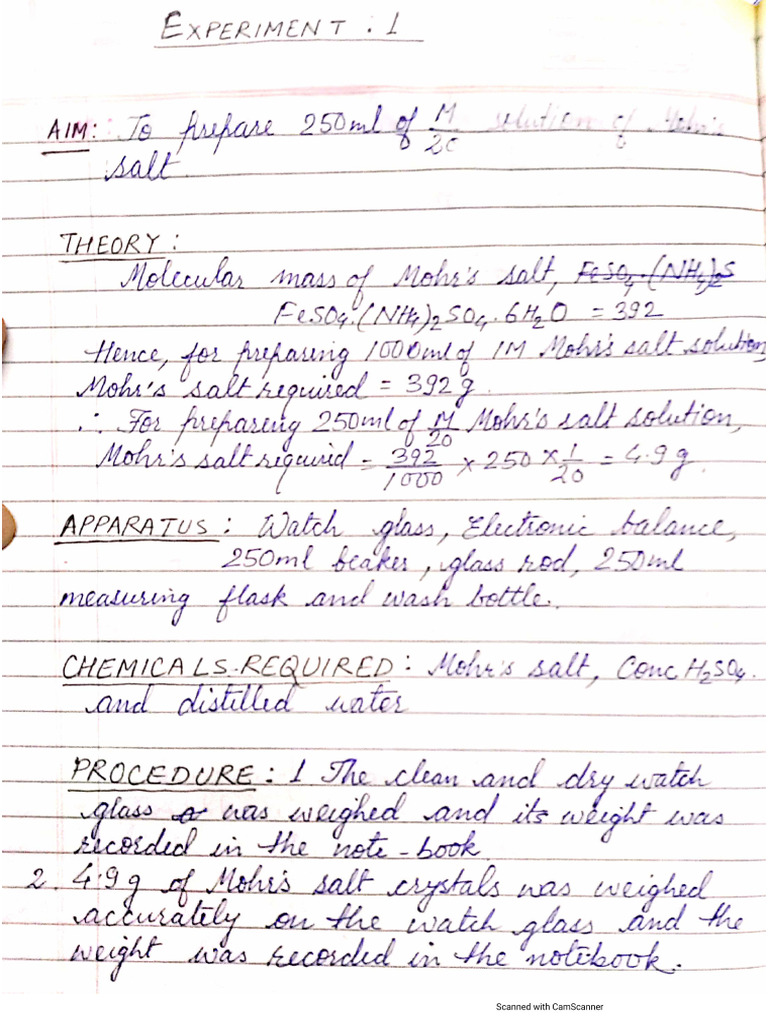 EXPERIMENT : 1
AIM: To prepare 250ml of M/20 solution of Mohr's
salt.
THEORY:
Molecular mass of Mohr's salt, FeSO4.(NH4)2S
FeSO4.(NH4)2SO4.6H2O = 392
Hence, for preparing 1000ml of 1M Mohr's salt solution
Mohr's salt required = 392g.
∴ For preparing 250ml of M/20 Mohr's salt solution,
Mohr's salt required = 392/1000 × 250 × 1/20 = 4.9 g.
APPARATUS : Watch glass, Electronic balance,
250ml beaker, glass rod, 250ml
measuring flask and wash bottle.
CHEMICALS REQUIRED : Mohr's salt, Conc H2SO4.
and distilled water
PROCEDURE : 1 The clean and dry watch
glass was weighed and its weight was
recorded in the note-book
2. 4.9g of Mohr's salt crystals was weighed
accurately on the watch glass and the
weight was recorded in the notebook.
Scanned with CamScanner